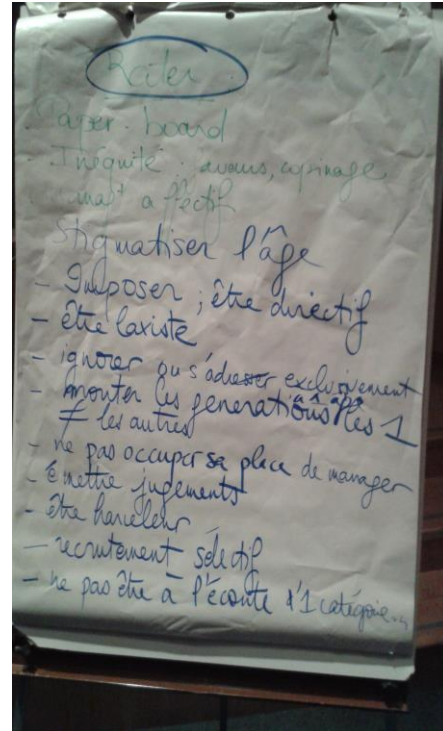 Rater
- Paper-board
- Inéquité : , copinage
- man^t affectif
Stigmatiser l'âge
- Imposer ; être directif
- être laxiste
- ignorer ou s'adresser exclusivement
à 1
- monter les générations les 1
≠ les autres
- ne pas occuper sa place de manager
- émettre jugements
- être harceleur
- recrutement sélectif
- ne pas être à l'écoute d'1 catégorie...